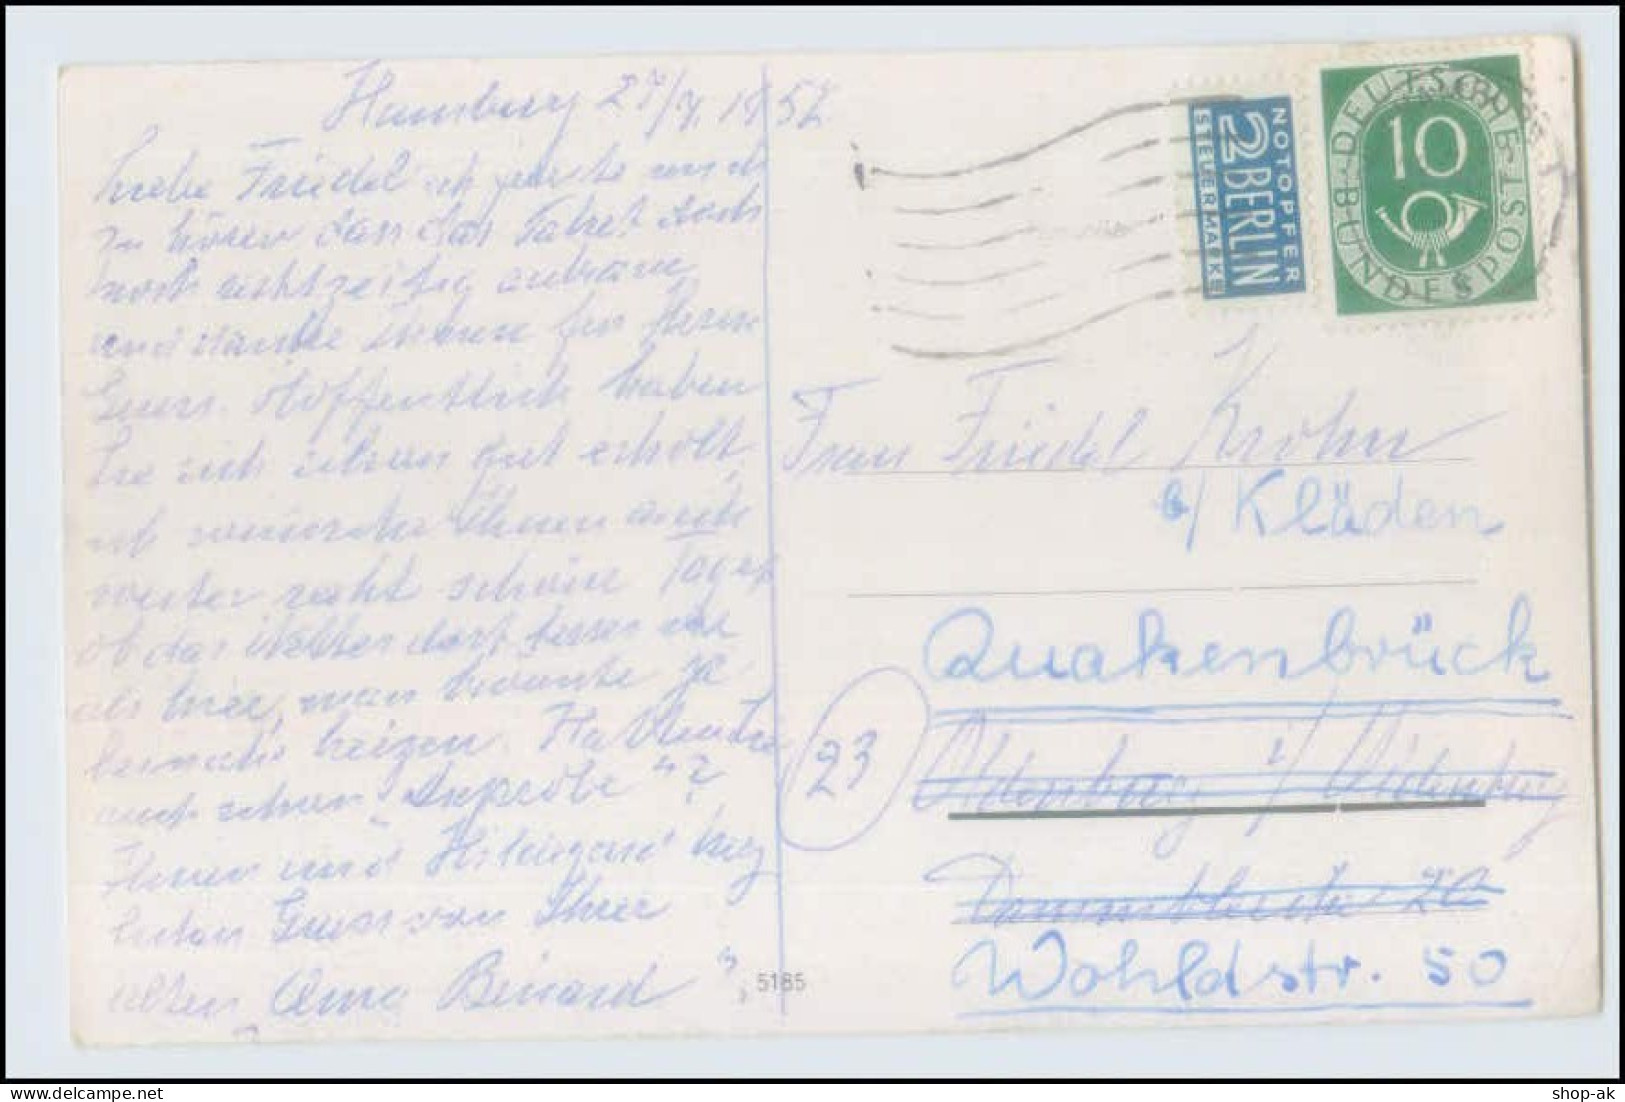 Hamburg 27/7. 1952
Liebe Friedel ich freute mich
zu hören dass das Paket doch
noch rechtzeitig ankam
und danke Ihnen für Ihren
Gruss. Hoffentlich haben
Sie sich schon gut erholt,
ich wünsche Ihnen auch
weiter recht schöne Tage,
ob das Wetter dort besser war
als hier, man konnte ja
beinahe heizen. Hat
auch schon
Ihnen und Hildegard herz
lichen Gruss von Ihrer
alten
5185
NOTOPFER
2 BERLIN
STEUERMARKE
DEUTSCHE BUNDESPOST
10
Frau Friedel Krohn
b/ Kläden
Quakenbrück
23
Oldenburg i/ Oldenburg
20
Wohldstr. 50
shop-ak